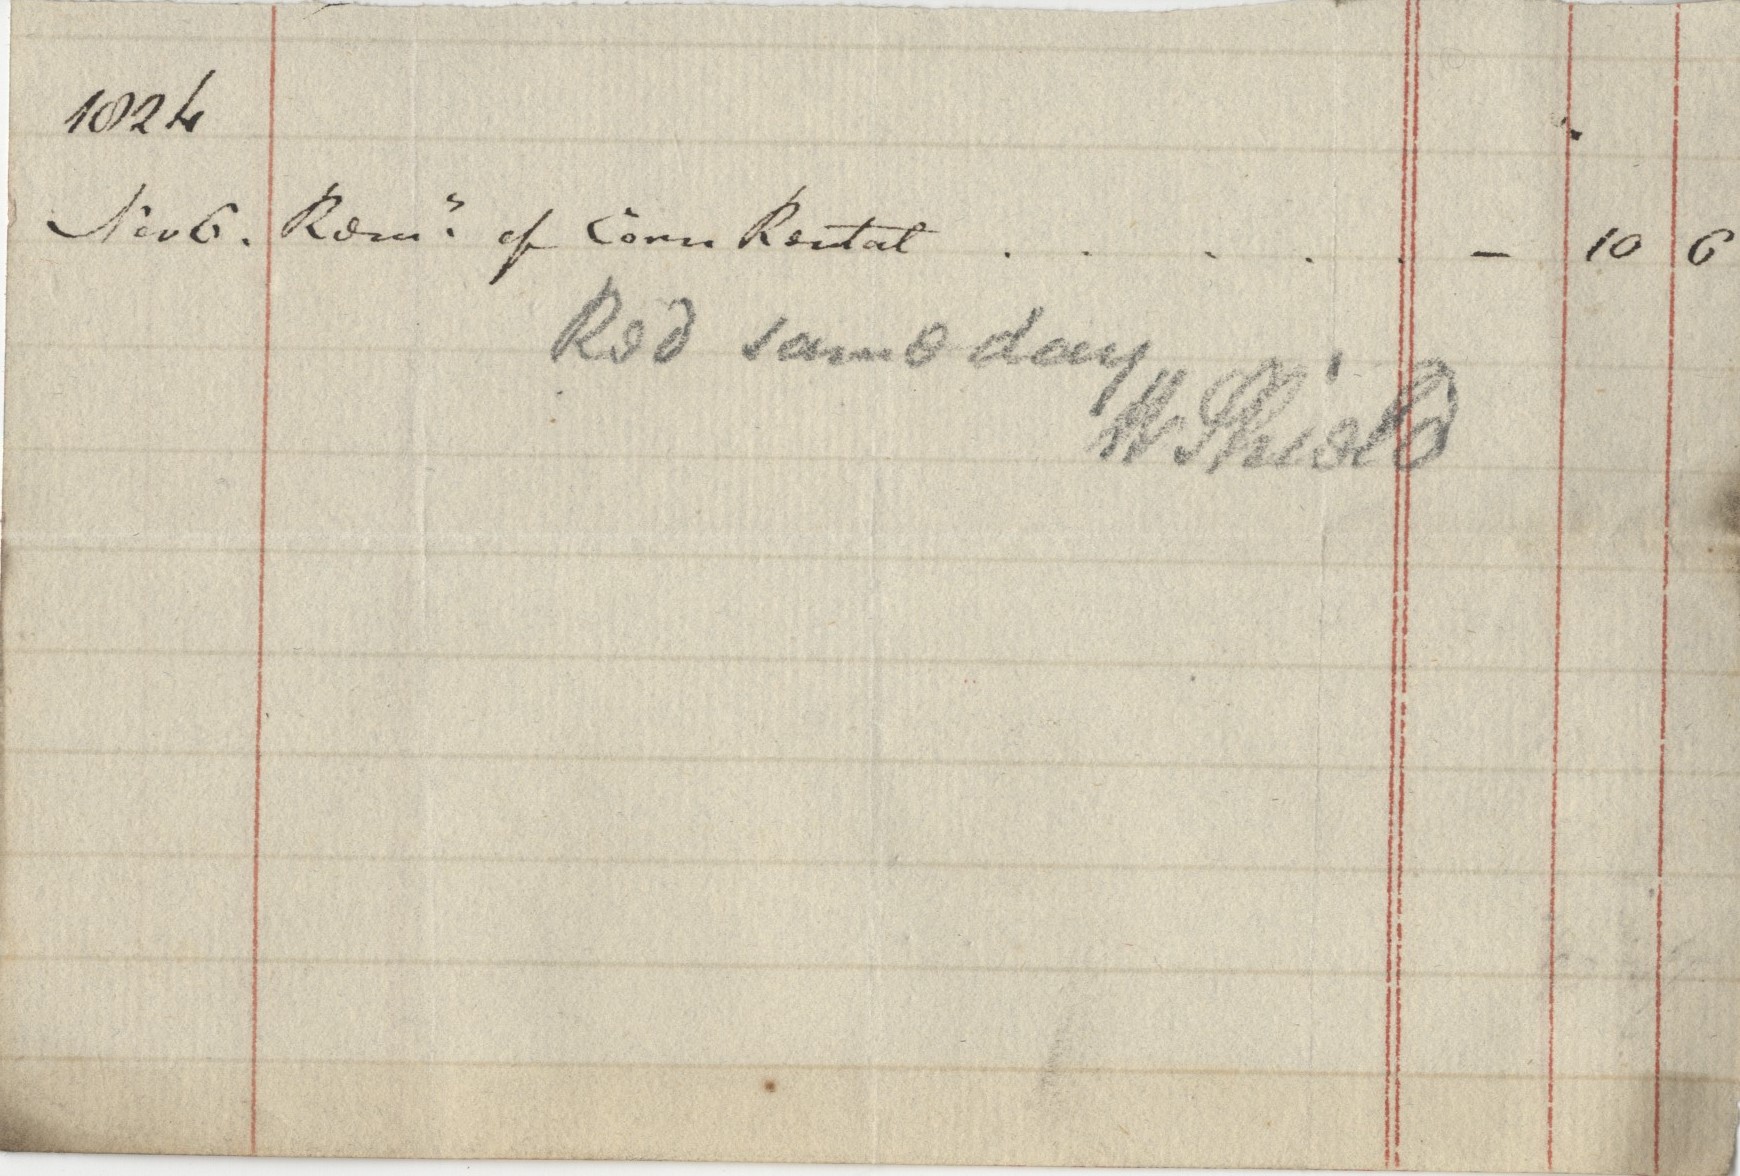 1824
Nov 6. Remr. of Corn Rental . . . . . — 10 6
Red same day
W Shield